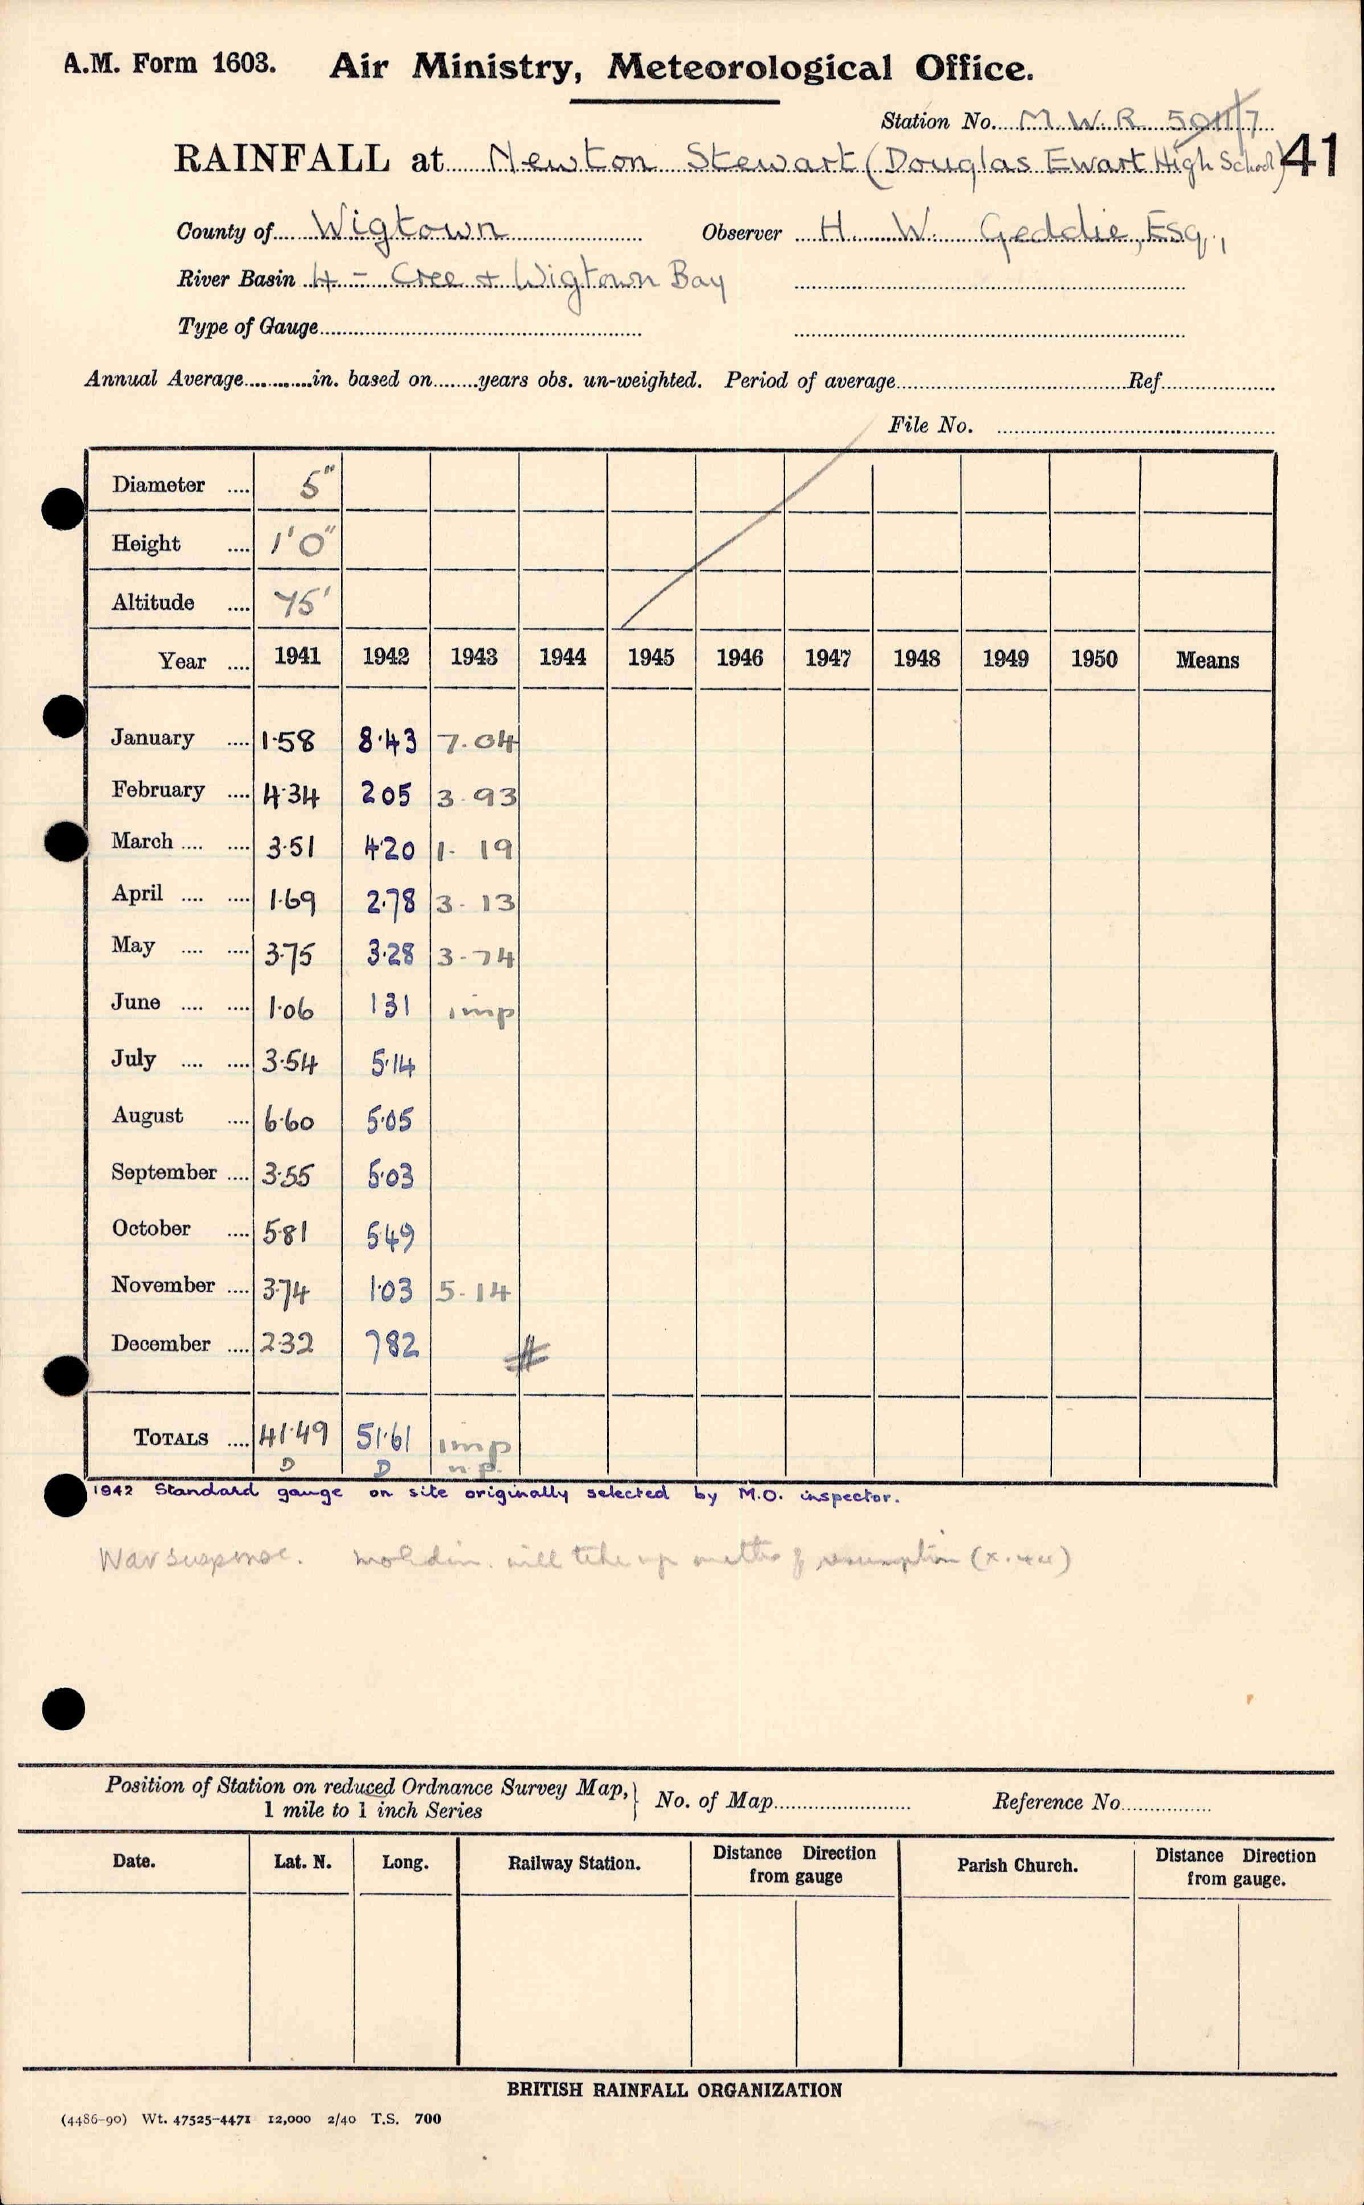 A.M. Form 1603. Air Ministry, Meteorological Office.
Station No. M.W.R. 5011/7
RAINFALL at Newton Stewart (Douglas Ewart High School) 41
County of Wigtown Observer H. W. Geddie, Esq.,
River Basin 4 - Cree + Wigtown Bay
Type of Gauge
Annual Average in. based on years obs. un-weighted. Period of average Ref
File No.
Diameter .... 5"
Height .... 1'0"
Altitude .... 75'
Year .... 1941 1942 1943 1944 1945 1946 1947 1948 1949 1950 Means
January .... 1.58 8.43 7.04
February .... 4.34 2 05 3.93
March .... .... 3.51 4.20 1.19
April .... .... 1.69 2.78 3.13
May .... .... 3.75 3.28 3.74
June .... .... 1.06 1 31 imp
July .... .... 3.54 5.14
August .... 6.60 5.05
September .... 3.55 5.03
October .... 5.81 5.49
November .... 3.74 1.03 5.14
December .... 2.32 7 82 #
TOTALS .... 41.49 51.61 imp
D D n.p.
1942 Standard gauge on site originally selected by M.O. inspector.
War suspense. will take up matter of resumption
Position of Station on reduced Ordnance Survey Map, } No. of Map Reference No.
1 mile to 1 inch Series
Date. Lat. N. Long. Railway Station. Distance Direction from gauge Parish Church. Distance Direction from gauge.
BRITISH RAINFALL ORGANIZATION
(4486-90) Wt. 47525-4471 12,000 2/40 T.S. 700